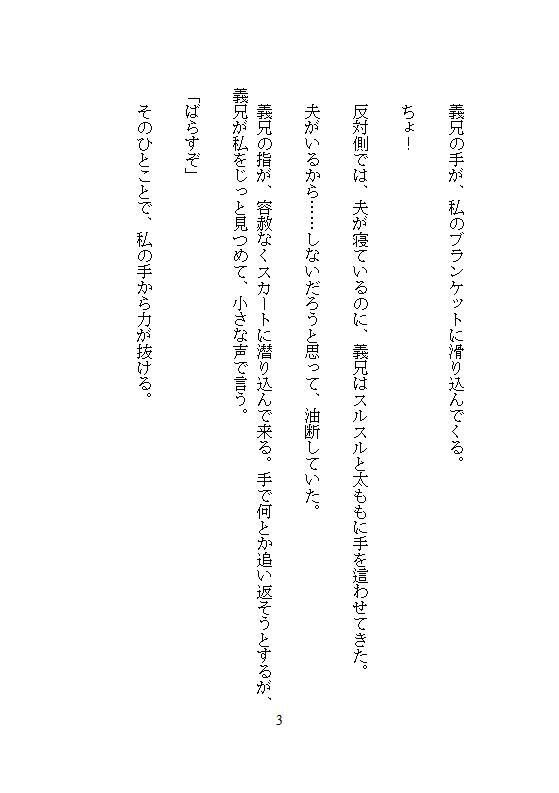 義兄の手が、私のブランケットに滑り込んでくる。
ちょ！
反対側では、夫が寝ているのに、義兄はスルスルと太ももに手を這わせてきた。
夫がいるから……しないだろうと思って、油断していた。
義兄の指が、容赦なくスカートに潜り込んで来る。手で何とか追い返そうとするが、
義兄が私をじっと見つめて、小さな声で言う。
「ばらすぞ」
そのひとことで、私の手から力が抜ける。
3